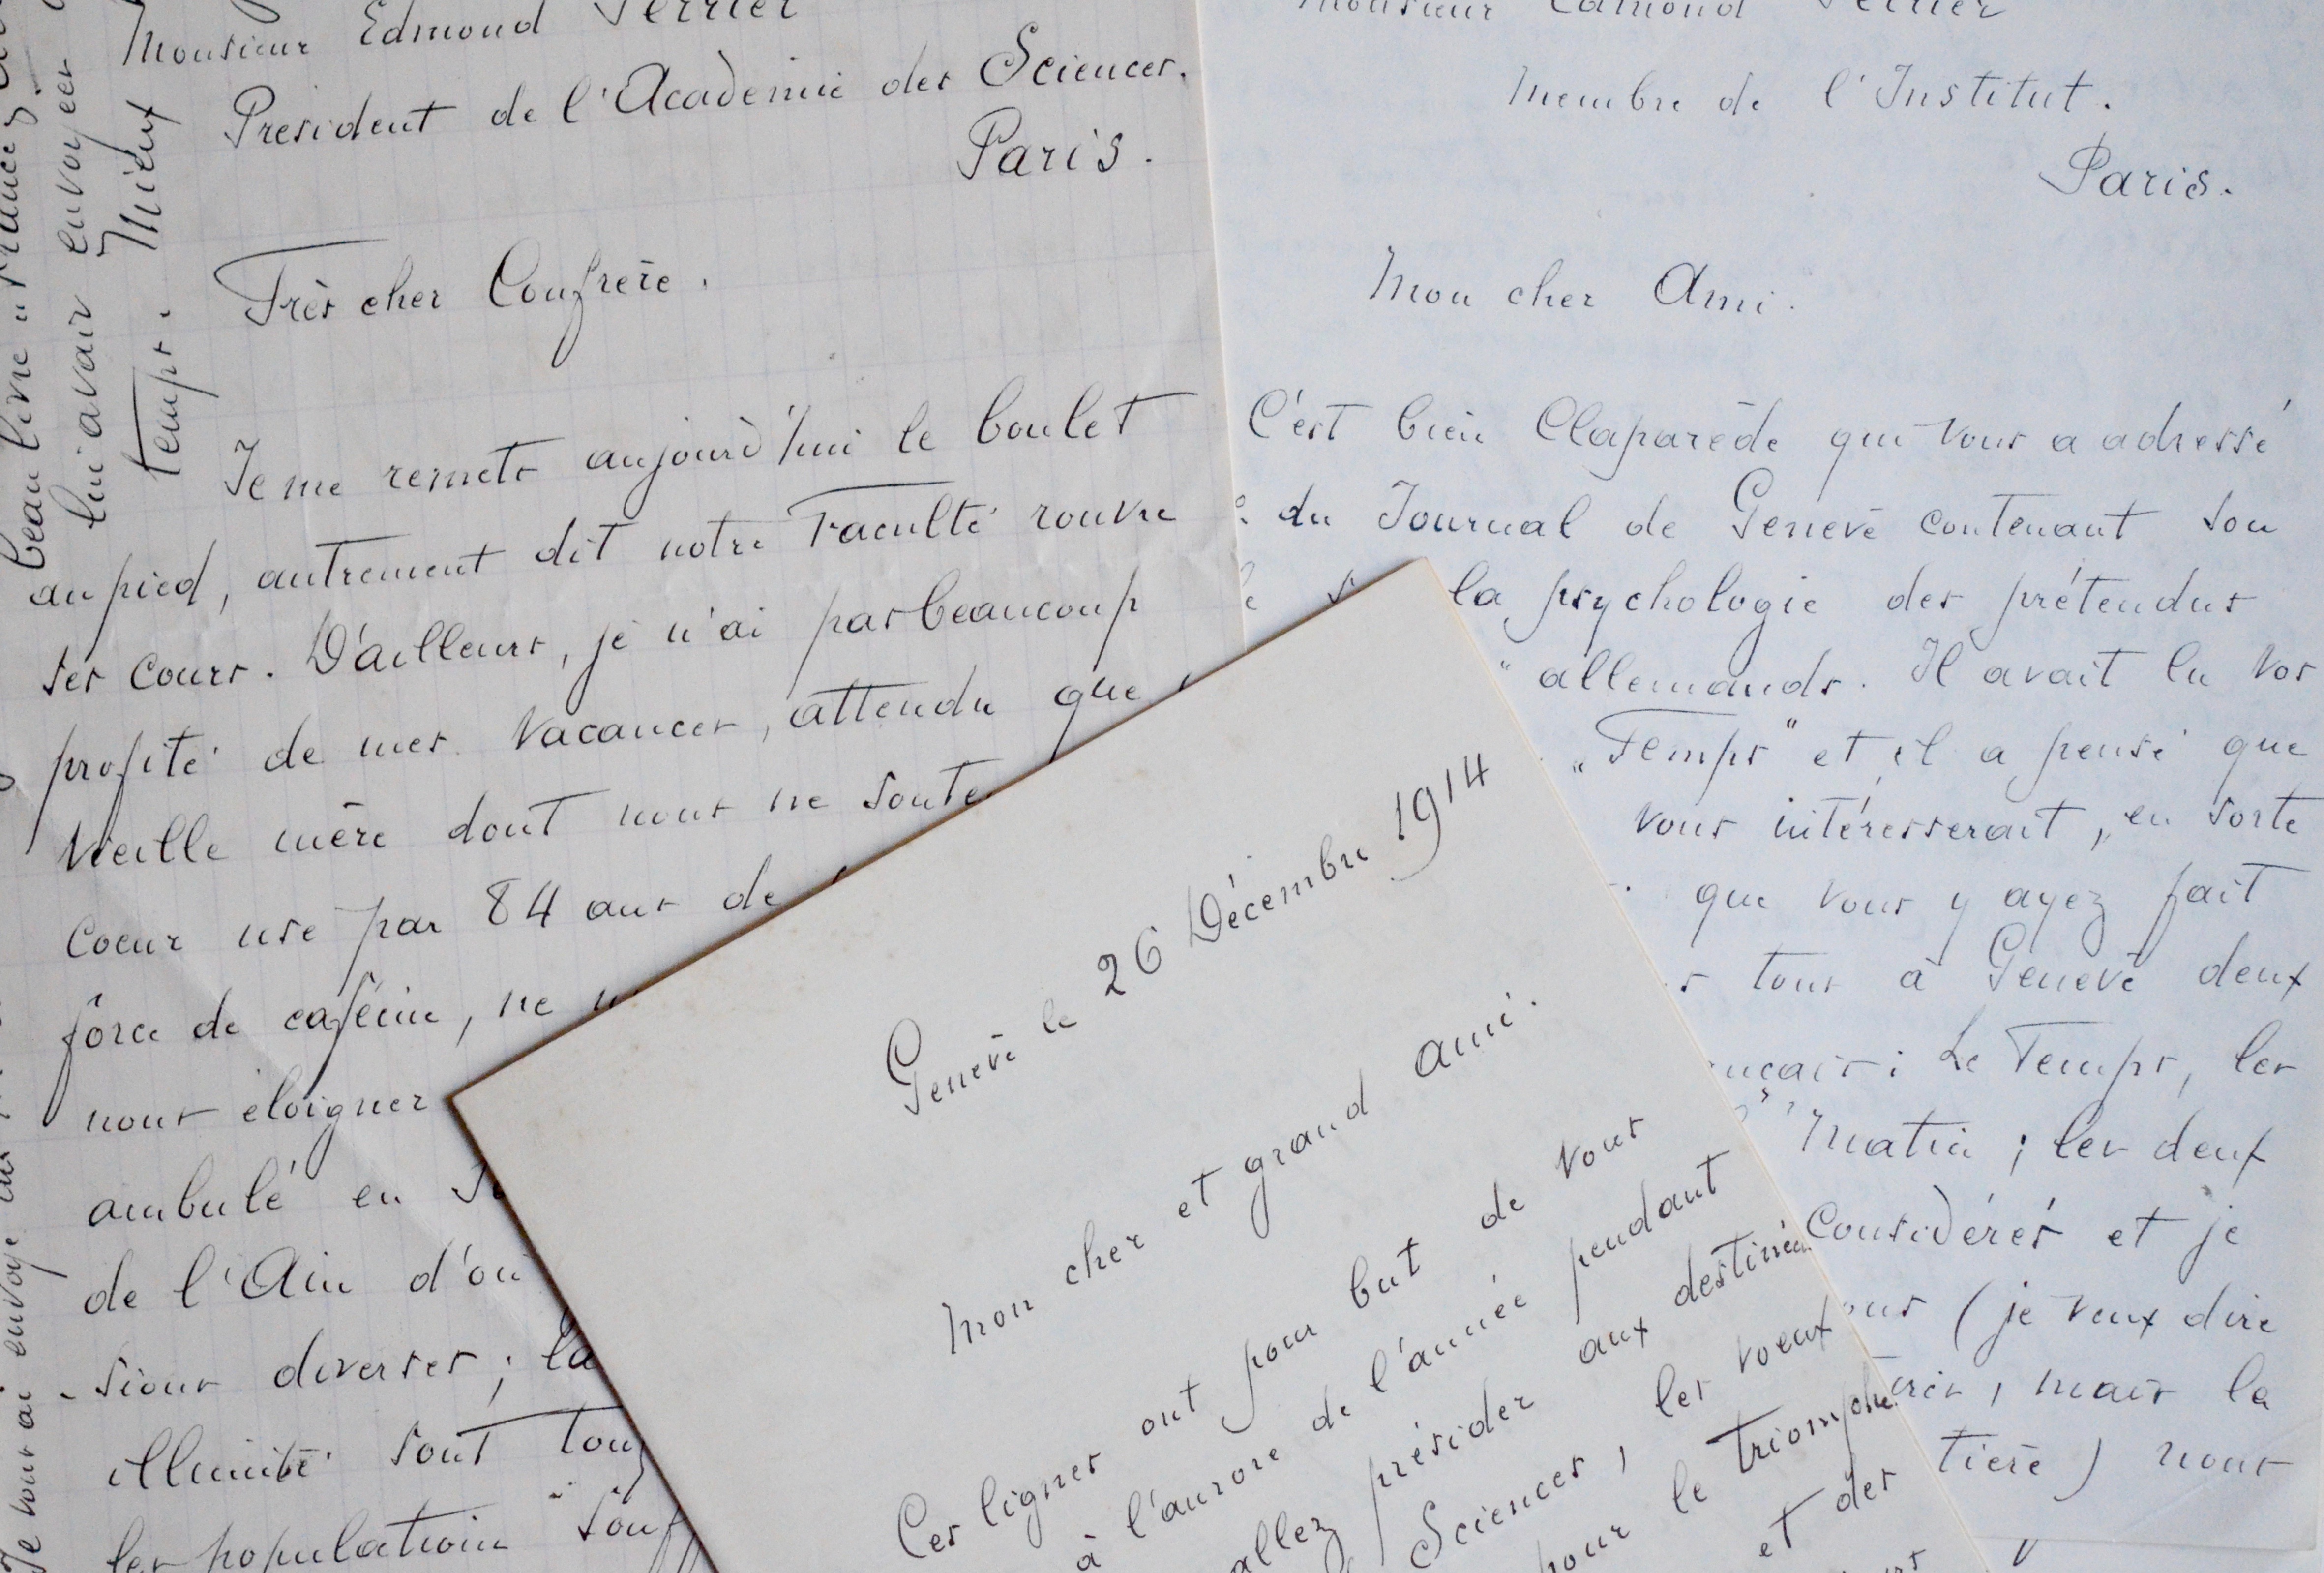 Monsieur Edmond Perrier
Président de l'Académie des Sciences.
Paris.
Très cher Confrère.
Je me remets aujourd'hui le boulet
au pied, autrement dit notre Faculté rouvre
ses cours. D'ailleurs, je n'ai pas beaucoup
profité de mes vacances, attendu que
vieille mère dont nous ne soute
coeur usé par 84 ans de
force de caféine, ne
nous éloigner
ambulé en
de l'Ain d'où
sions diverses; la
illimité sont touj
les population souf
beau livre "France
lui avoir envoyer
Mieux
temps.
Je vous ai envoyé
Monsieur Edmond Perrier
Membre de l'Institut.
Paris.
Mon cher Ami.
C'est bien Claparède qui vous a adressé
du Journal de Genève contenant son
la psychologie des prétendus
" allemands. Il avait lu vos
„Temps" et il a pensé que
vous intéresserait, en sorte
que vous y ayez fait
tous à Genève deux
ançais: Le Temps, les
Matin; les deux
Considérés et je
ous (je veux dire
mais la
tière) nous
Genève le 26 Décembre 1914
Mon cher et grand ami.
Ces lignes ont pour but de vous
à l'aurore de l'année pendant
allez présider aux destinées
Sciences, les voeux
pour le triomphe
et des